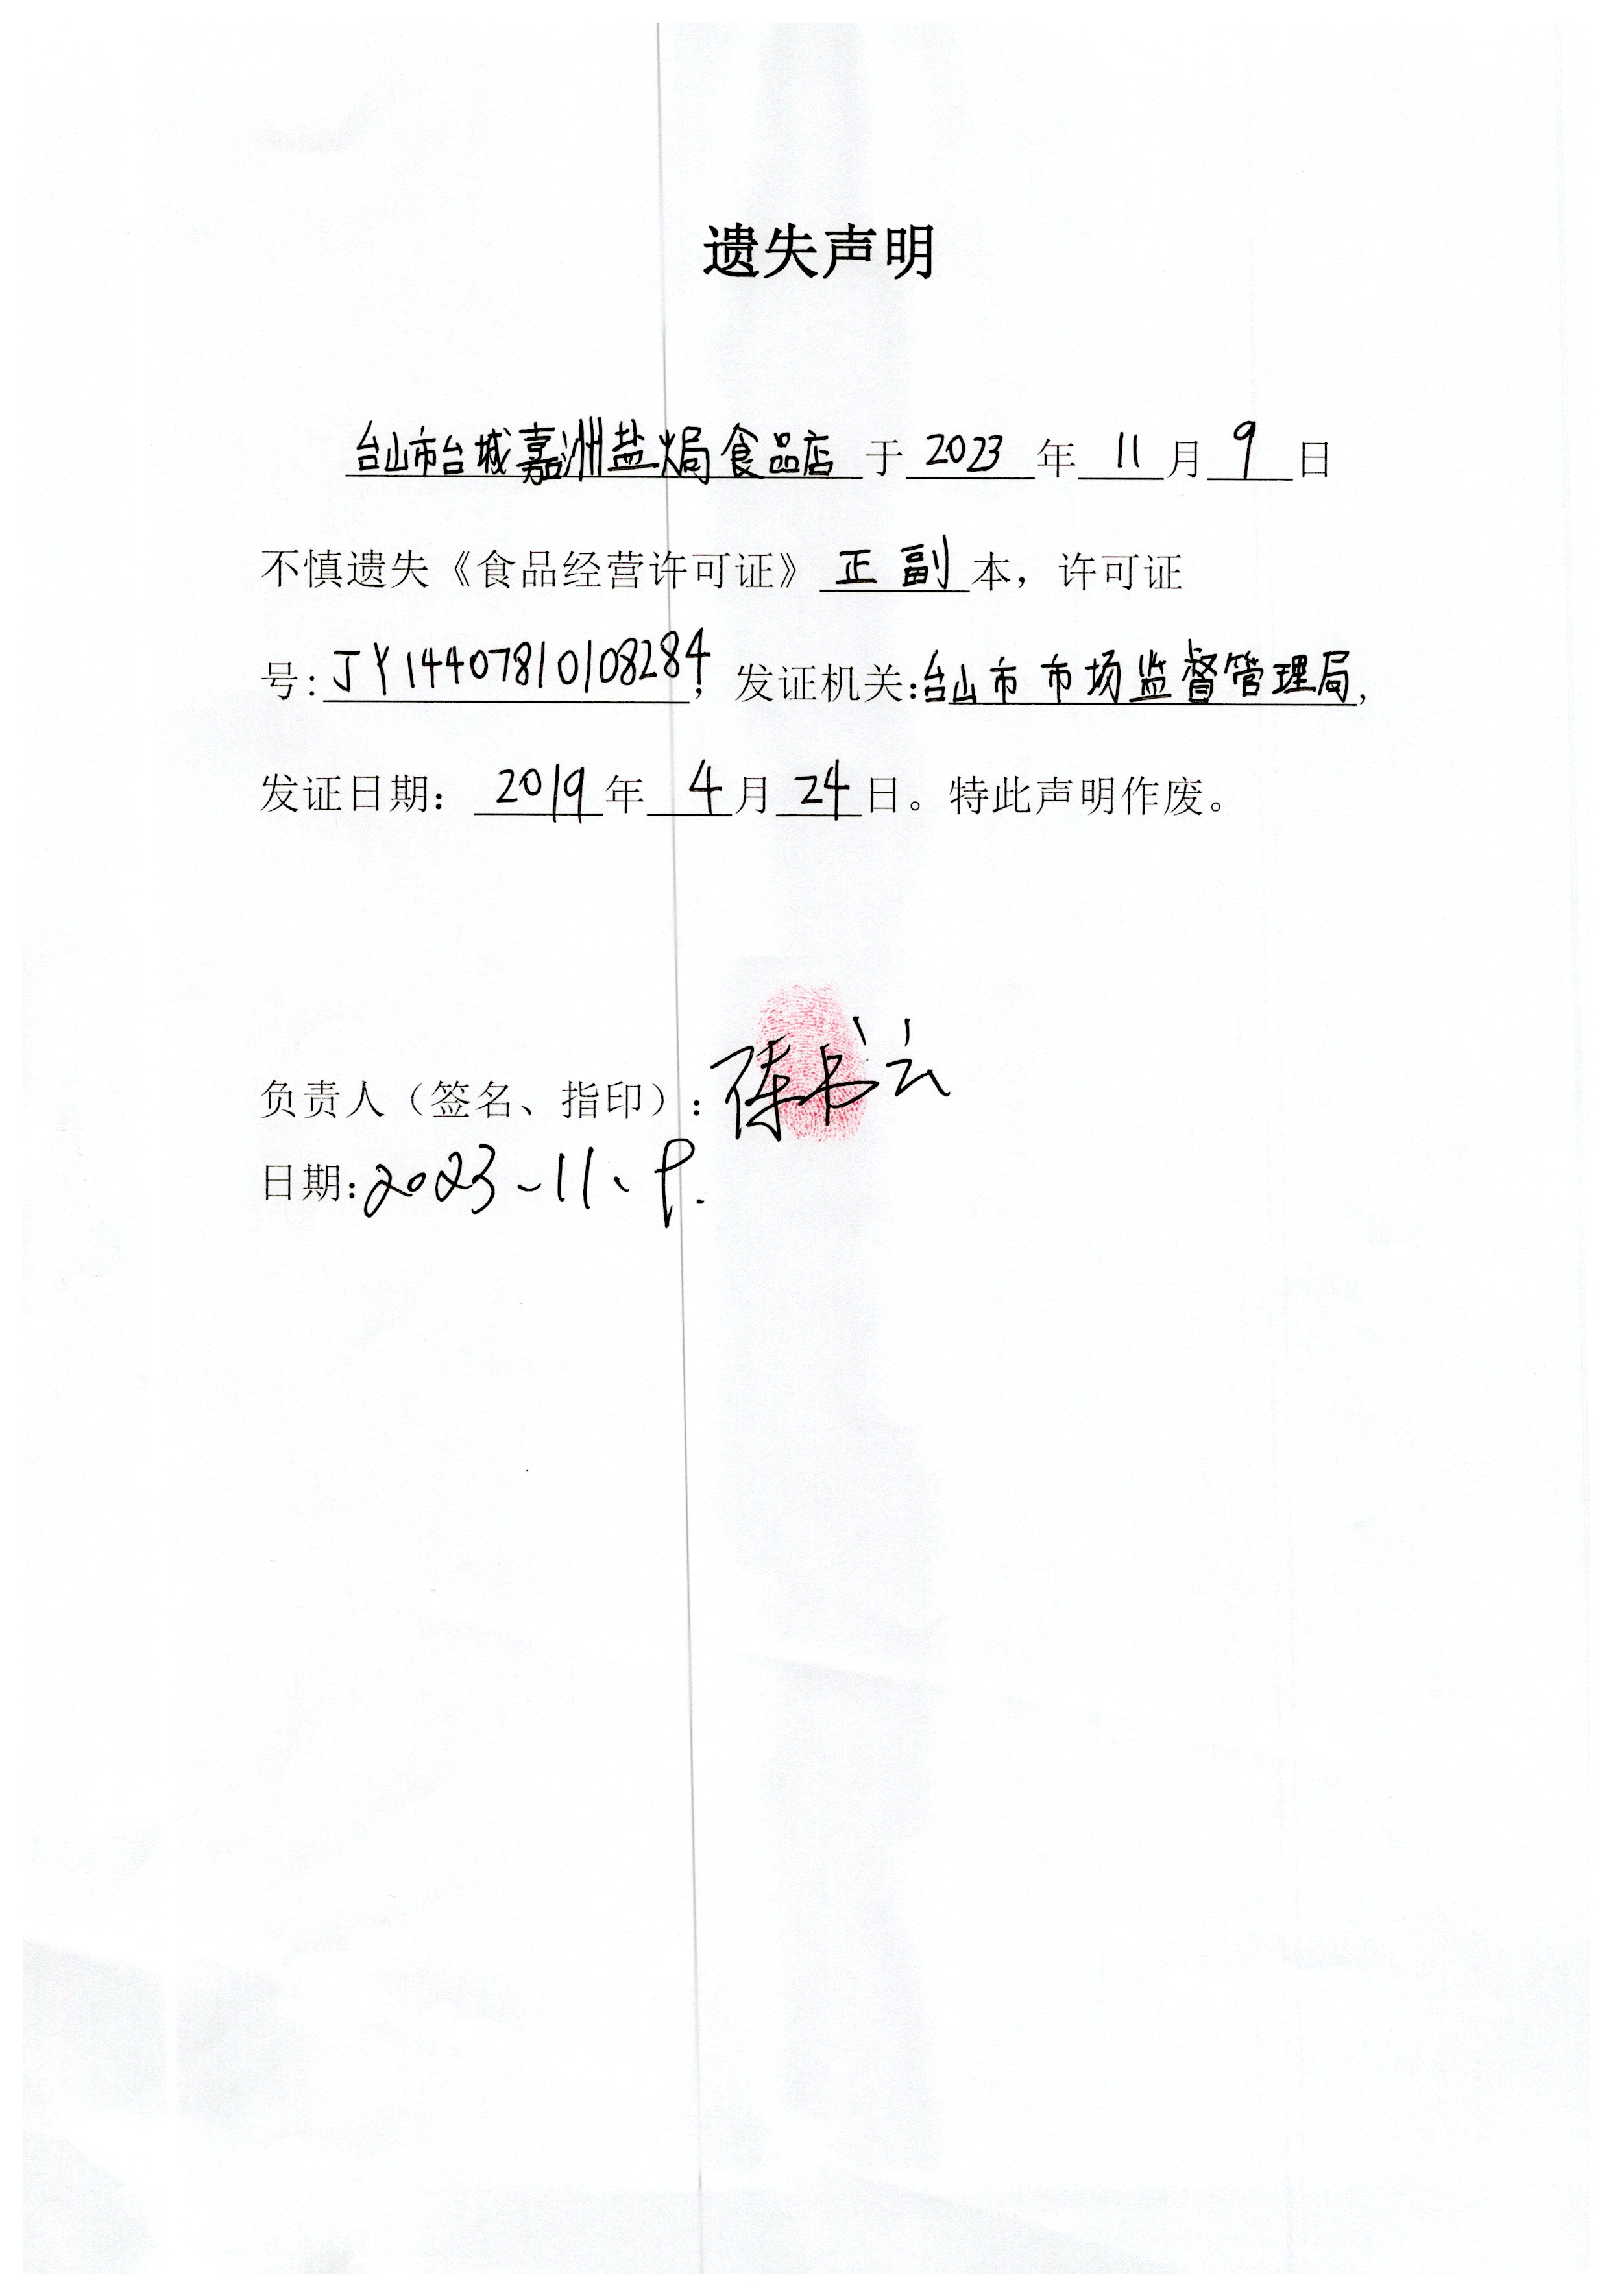 遗失声明
台山市台城嘉洲盐焗食品店于2023年11月9日
不慎遗失《食品经营许可证》正副本，许可证
号：JY14407810108284，发证机关：台山市市场监督管理局，
发证日期：2019年4月24日。特此声明作废。
负责人（签名、指印）：陈书云
日期：2023-11、9.